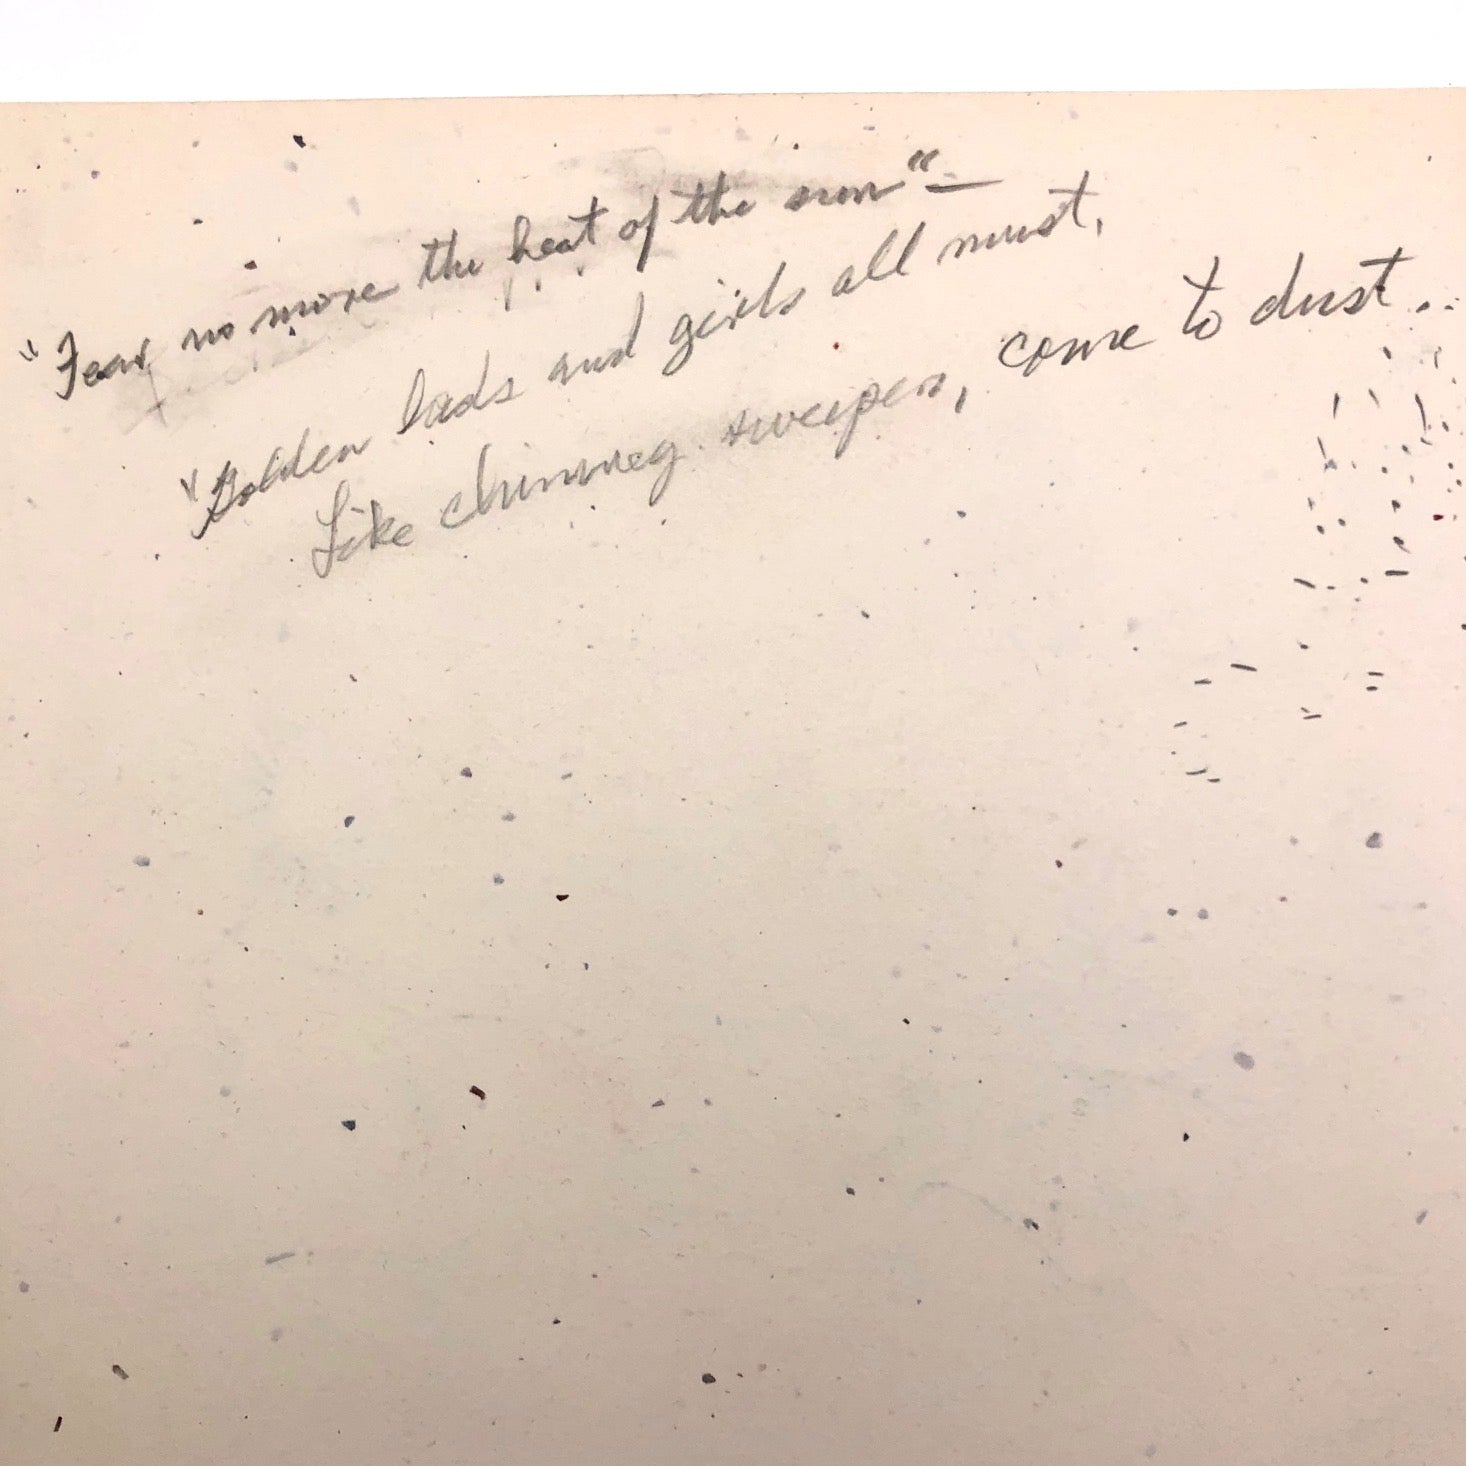 "Fear no more the heat of the sun"—
"Golden lads and girls all must,
Like chimney sweepers, come to dust..